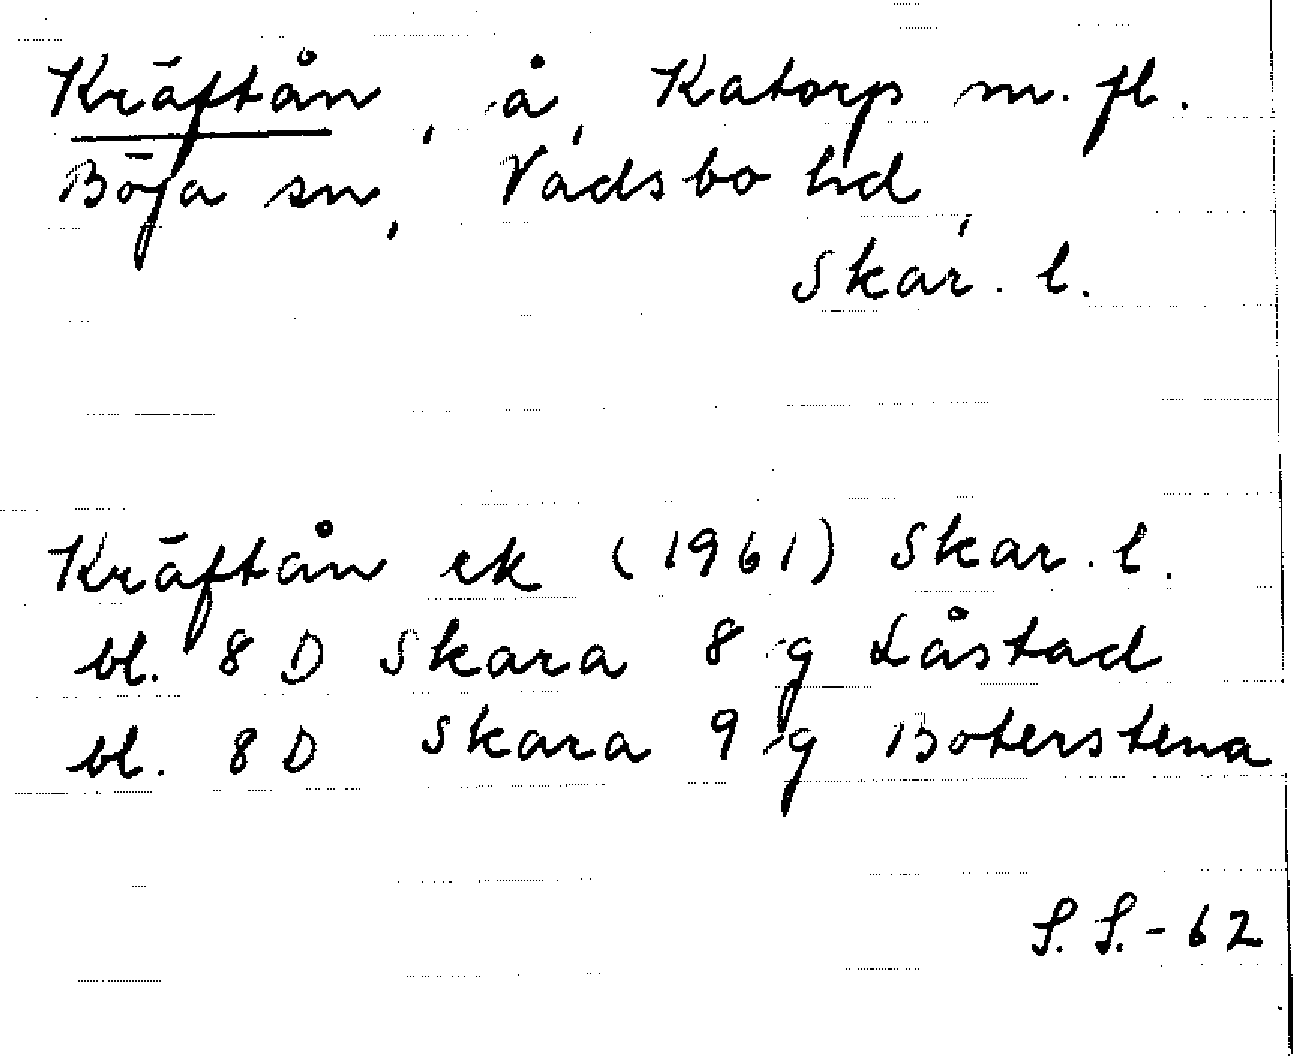 Kräftån, å, Katorp m. fl.
Böja sn, Vadsbo hd,
Skar. l.
Kräftån ek (1961) Skar. l.
bl. 8 D Skara 8 g Låstad
bl. 8 D Skara 9 g Boterstena
S. S. - 62